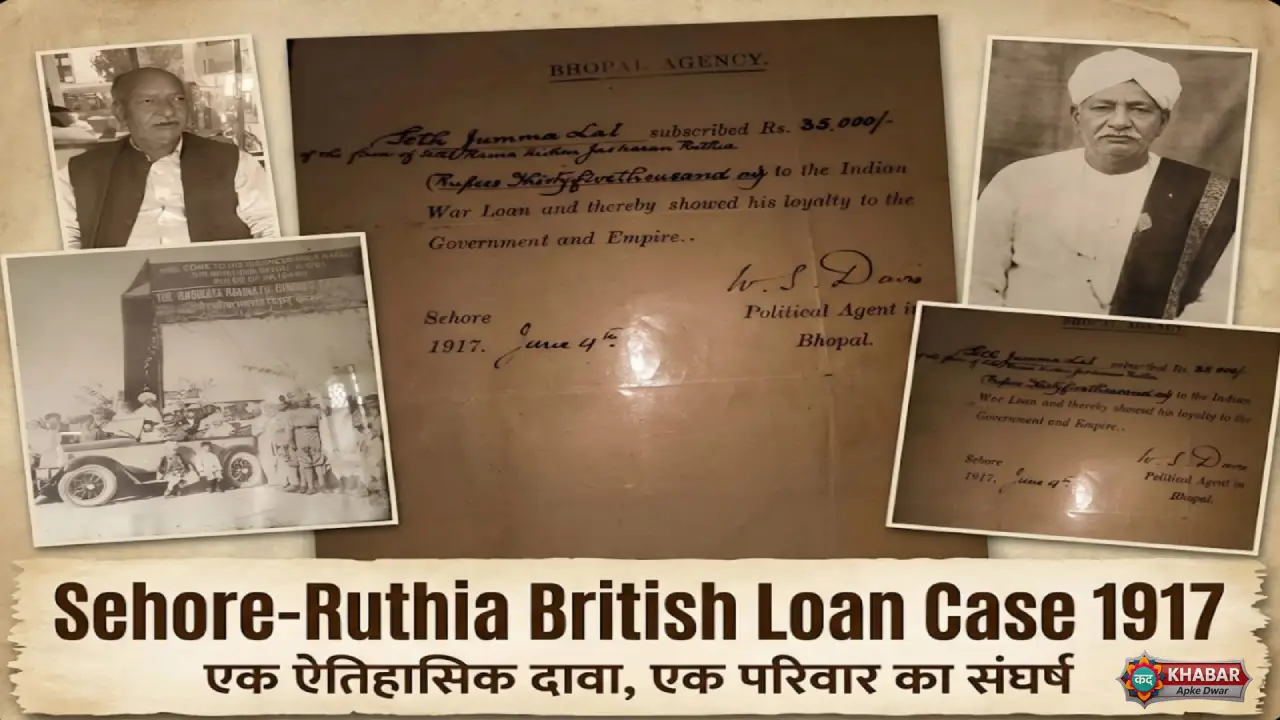 BHOPAL AGENCY.
Seth Jumma Lal subscribed Rs. 35,000/-
of the firm of Seth Rama Kishen Jaskaran Ruthia
(Rupees Thirtyfivethousand only to the Indian
War Loan and thereby showed his loyalty to the
Government and Empire..
W. S. Davis
Sehore
Political Agent in
1917. June 4th.
Bhopal.
BHOPAL AGENCY.
Seth Jumma Lal subscribed Rs. 35,000/-
(Rupees Thirtyfivethousand only to the Indian
War Loan and thereby showed his loyalty to the
Government and Empire..
W. S. Davis
Sehore
Political Agent in
1917. June 4th.
Bhopal.
Sehore-Ruthia British Loan Case 1917
एक ऐतिहासिक दावा, एक परिवार का संघर्ष
कद
KHABAR
Apke Dwar